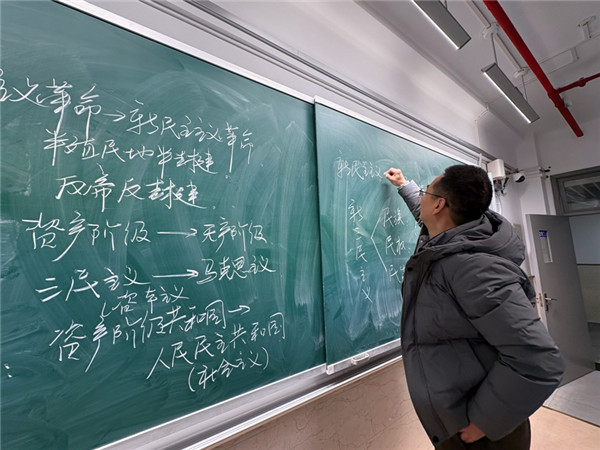 义革命→新民主义革命
半殖民地半封建
反帝反封建
资产阶级→无产阶级
三民主义→马克思义
资产阶级共和国→
人民民主共和国
(社会义)
新民主主义
新三民主义
民族
民权
民